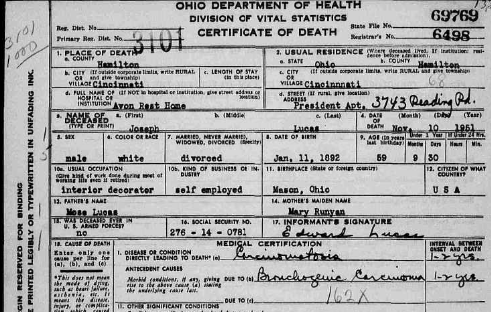 OHIO DEPARTMENT OF HEALTH
DIVISION OF VITAL STATISTICS
CERTIFICATE OF DEATH
Reg. Dist. No.
Primary Reg. Dist. No. 3101
State File No. 69769
Registrar's No. 6498
3101
1000
1. PLACE OF DEATH
a. COUNTY
Hamilton
b. CITY (If outside corporate limits, write RURAL and give township)
VILLAGE Cincinnati
c. LENGTH OF STAY (in this place)
d. FULL NAME OF (If not in hospital or institution, give street address or location)
HOSPITAL OR INSTITUTION
Avon Rest Home
2. USUAL RESIDENCE (Where deceased lived. If institution: residence before admission).
a. STATE
Ohio
b. COUNTY
Hamilton
c. CITY (If outside corporate limits, write RURAL and give township)
VILLAGE Cincinnati
d. STREET (If rural, give location)
ADDRESS
President Apt. 3743 Reading Rd.
3. NAME OF DECEASED (TYPE OR PRINT)
a. (First)
Joseph
b. (Middle)
c. (Last)
Lucas
4. DATE OF DEATH
(Month) (Day) (Year)
Nov. 10 1951
5. SEX
male
6. COLOR OR RACE
white
7. MARRIED, NEVER MARRIED, WIDOWED, DIVORCED (Specify)
divorced
8. DATE OF BIRTH
Jan, 11, 1892
9. AGE (In years last birthday)
59
If Under 1 Year
Months Days
9 30
If Under 24 Hrs.
Hours Min.
10a. USUAL OCCUPATION (Give kind of work done during most of working life, even if retired)
interior decorator
10b. KIND OF BUSINESS OR INDUSTRY
self employed
11. BIRTHPLACE (State or foreign country)
Mason, Ohio
12. CITIZEN OF WHAT COUNTRY?
U S A
13. FATHER'S NAME
Mose Lucas
14. MOTHER'S MAIDEN NAME
Mary Runyan
15. WAS DECEASED EVER IN U. S. ARMED FORCES?
no
16. SOCIAL SECURITY NO.
276 - 14 - 0781
17. INFORMANT'S SIGNATURE
Edward Lucas
18. CAUSE OF DEATH
Enter only one cause per line for (a), (b), and (c)
MEDICAL CERTIFICATION
INTERVAL BETWEEN ONSET AND DEATH
I. DISEASE OR CONDITION
DIRECTLY LEADING TO DEATH* (a) Carcinomatosis
1-2 yrs.
ANTECEDENT CAUSES
Morbid conditions, if any, giving rise to the above cause (a) stating the underlying cause last.
DUE TO (b) Bronchogenic Carcinoma
1-2 yrs
DUE TO (c)
162X
*This does not mean the mode of dying, such as heart failure, asthenia, etc. It means the disease, injury, or complication which caused
II. OTHER SIGNIFICANT CONDITIONS
GIN RESERVED FOR BINDING
E PRINTED LEGIBLY OR TYPEWRITTEN IN UNFADING INK.